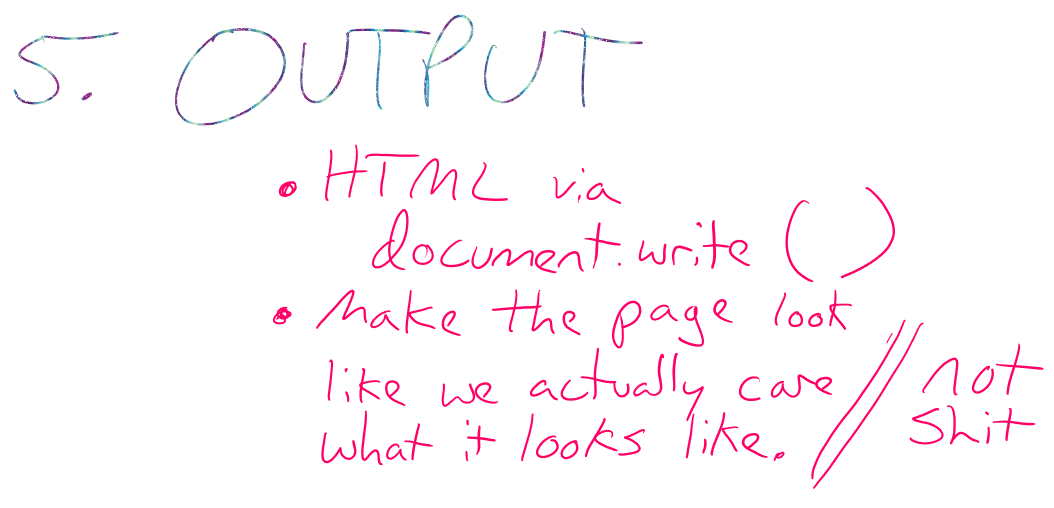 5. OUTPUT
• HTML via
document.write ( )
• Make the page look
like we actually care // not
what it looks like. shit